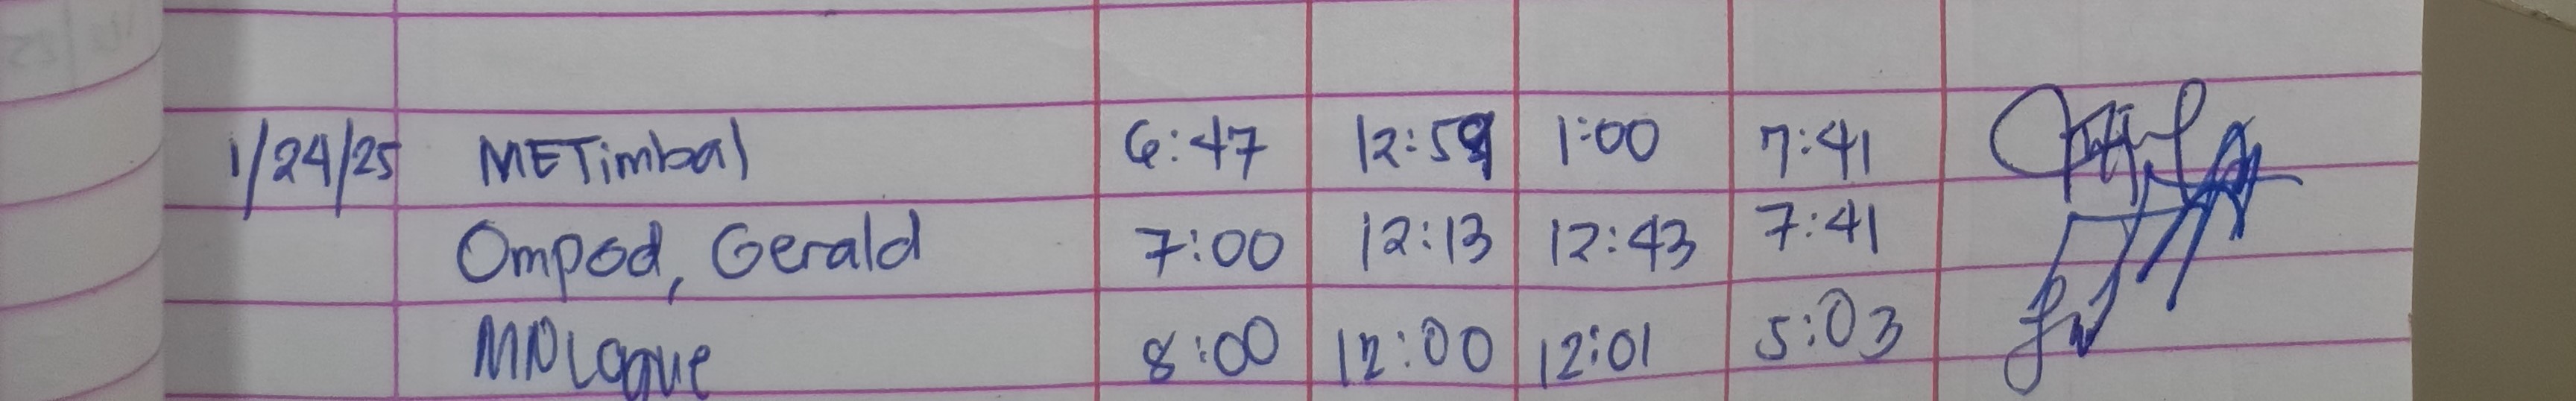 1/24/25 METimbal 6:47 12:59 1:00 7:41
Ompod, Gerald 7:00 12:13 12:43 7:41
8:00 12:00 12:01 5:03